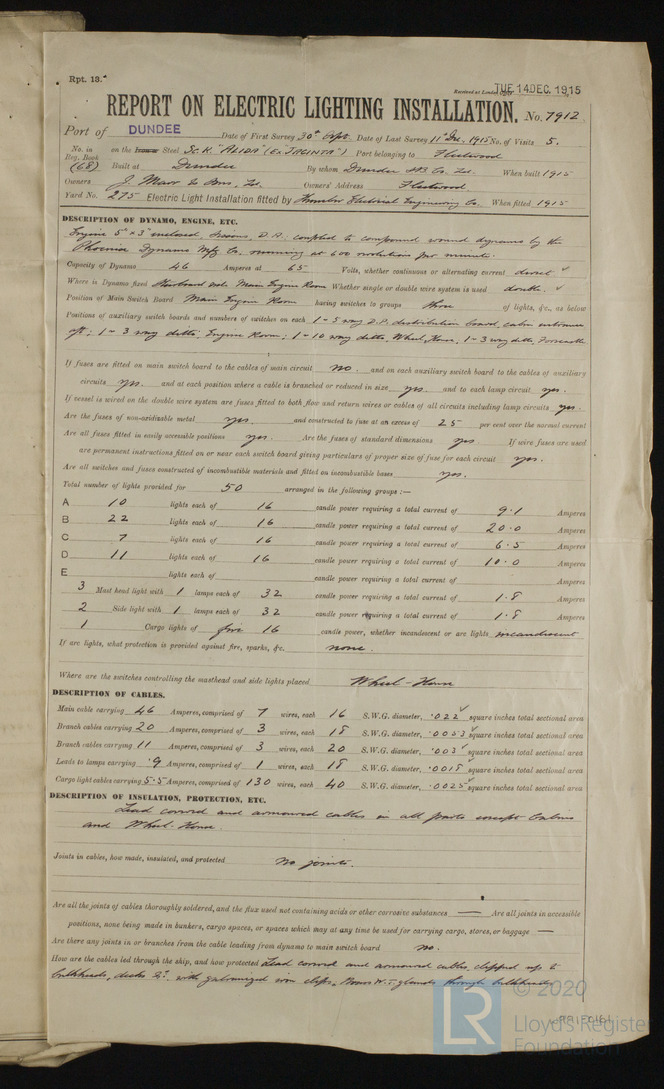 Rpt. 13.
Received at London Office TUE. 14 DEC. 1915
REPORT ON ELECTRIC LIGHTING INSTALLATION. No. 7912
Port of DUNDEE Date of First Survey 30th Sept Date of Last Survey 11th Dec. 1915 No. of Visits 5.
No. in Reg. Book (68) on the Iron or Steel Sc. K. "ALIDA" (Ex "JACINTA") Port belonging to Fleetwood
Built at Dundee By whom Dundee SB Co. Ltd. When built 1915
Owners J. Marr & Son, Ltd. Owners' Address Fleetwood
Yard No. 275 Electric Light Installation fitted by Electrical Engineering Co. When fitted 1915
DESCRIPTION OF DYNAMO, ENGINE, ETC.
Engine 5" x 3" enclosed, D.A.; coupled to compound wound dynamo by the
Phoenix Dynamo Mfg Co, running at 600 revolutions per minute.
Capacity of Dynamo 46 Amperes at 65 Volts, whether continuous or alternating current direct
Where is Dynamo fixed Starboard side Main Engine Room Whether single or double wire system is used double.
Position of Main Switch Board Main Engine Room having switches to groups three of lights, &c., as below
Positions of auxiliary switch boards and numbers of switches on each 1 - 5 way D.P. distribution board, cabin entrance
aft; 1 - 3 way ditto, Engine Room; 1 - 10 way ditto, Wheel House; 1 - 3 way ditto, Forecastle
If fuses are fitted on main switch board to the cables of main circuit no. and on each auxiliary switch board to the cables of auxiliary
circuits yes. and at each position where a cable is branched or reduced in size yes. and to each lamp circuit yes.
If vessel is wired on the double wire system are fuses fitted to both flow and return wires or cables of all circuits including lamp circuits yes.
Are the fuses of non-oxidizable metal yes. and constructed to fuse at an excess of 25 per cent over the normal current
Are all fuses fitted in easily accessible positions yes. Are the fuses of standard dimensions yes. If wire fuses are used
are permanent instructions fitted on or near each switch board giving particulars of proper size of fuse for each circuit yes.
Are all switches and fuses constructed of incombustible materials and fitted on incombustible bases yes.
Total number of lights provided for 50 arranged in the following groups :—
A 10 lights each of 16 candle power requiring a total current of 9.1 Amperes
B 22 lights each of 16 candle power requiring a total current of 20.0 Amperes
C 7 lights each of 16 candle power requiring a total current of 6.5 Amperes
D 11 lights each of 16 candle power requiring a total current of 10.0 Amperes
E lights each of candle power requiring a total current of Amperes
3 Mast head light with 1 lamps each of 32 candle power requiring a total current of 1.8 Amperes
2 Side light with 1 lamps each of 32 candle power requiring a total current of 1.8 Amperes
1 Cargo lights of five 16 candle power, whether incandescent or arc lights incandescent
If arc lights, what protection is provided against fire, sparks, &c. none.
Where are the switches controlling the masthead and side lights placed Wheel-House
DESCRIPTION OF CABLES.
Main cable carrying 46 Amperes, comprised of 7 wires, each 16 S.W.G. diameter, .022 square inches total sectional area
Branch cables carrying 20 Amperes, comprised of 3 wires, each 18 S.W.G. diameter, .0053 square inches total sectional area
Branch cables carrying 11 Amperes, comprised of 3 wires, each 20 S.W.G. diameter, .003 square inches total sectional area
Leads to lamps carrying .9 Amperes, comprised of 1 wires, each 18 S.W.G. diameter, .0018 square inches total sectional area
Cargo light cables carrying 5.5 Amperes, comprised of 130 wires, each 40 S.W.G. diameter, .0025 square inches total sectional area
DESCRIPTION OF INSULATION, PROTECTION, ETC.
Lead covered and armoured cables in all parts except Cabins
and Wheel-House.
Joints in cables, how made, insulated, and protected No joints.
Are all the joints of cables thoroughly soldered, and the flux used not containing acids or other corrosive substances — Are all joints in accessible
positions, none being made in bunkers, cargo spaces, or spaces which may at any time be used for carrying cargo, stores, or baggage —
Are there any joints in or branches from the cable leading from dynamo to main switch board no.
How are the cables led through the ship, and how protected Lead covered and armoured cables, clipped up to
bulkheads, decks &c. with galvanized iron clips, W.T. glands through bulkheads
© 2020
Lloyd's Register
Foundation